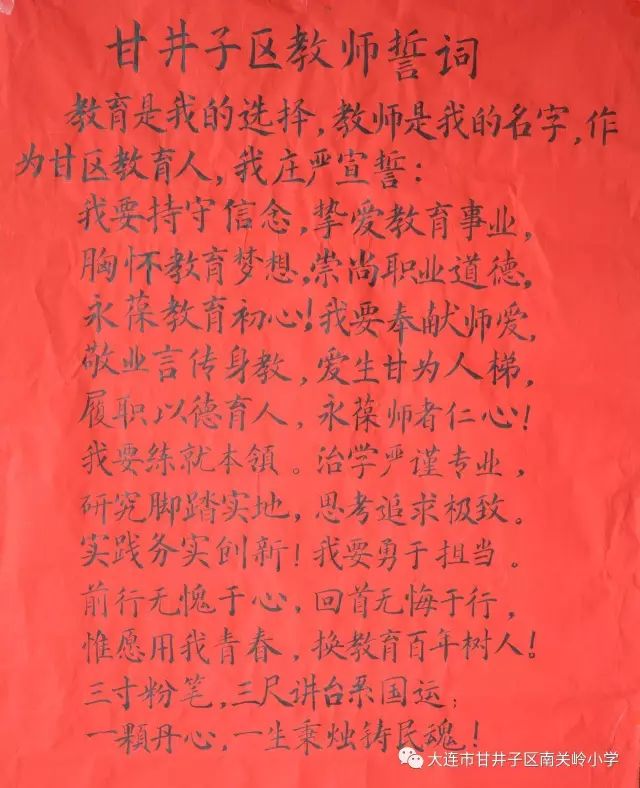 甘井子区教师誓词
教育是我的选择，教师是我的名字，作
为甘区教育人，我庄严宣誓：
我要持守信念，挚爱教育事业，
胸怀教育梦想，崇尚职业道德，
永葆教育初心！我要奉献师爱，
敬业言传身教，爱生甘为人梯，
履职以德育人，永葆师者仁心！
我要练就本領。治学严谨专业，
研究脚踏实地，思考追求极致。
实践务实创新！我要勇于担当。
前行无愧于心，回首无悔于行，
惟愿用我青春，换教育百年树人！
三寸粉笔，三尺讲台系国运；
一顆丹心，一生秉烛铸民魂！
大连市甘井子区南关岭小学